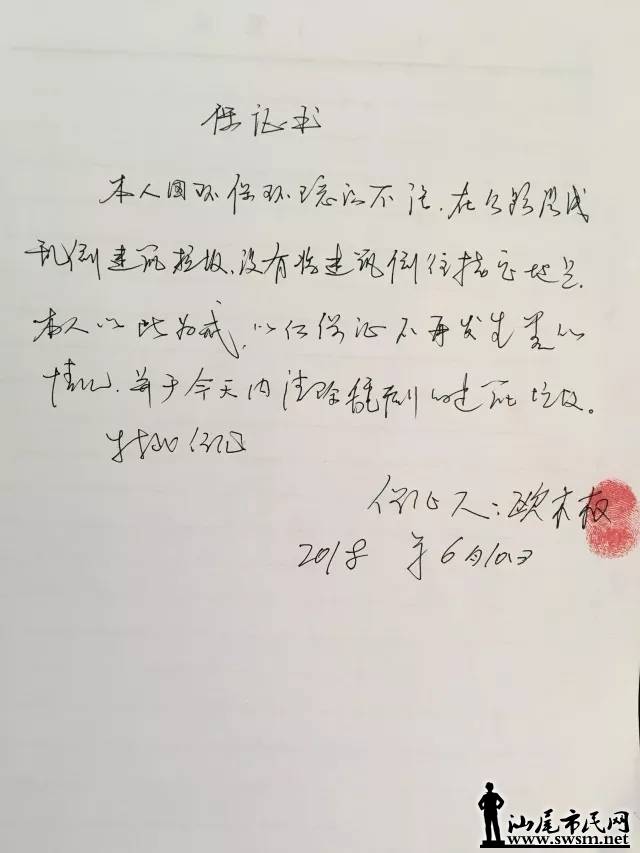 保证书
本人因环保环境认不法,在公路段成
乱倒建筑垃圾,没有将建筑倒往指定地点.
本人以此为戒,以后保证不再发生类似
情况.并于今天内清除乱倒的建筑垃圾。
特此保证
保证人:欧木权
2018年6月10日
汕尾市民网
www.swsm.net